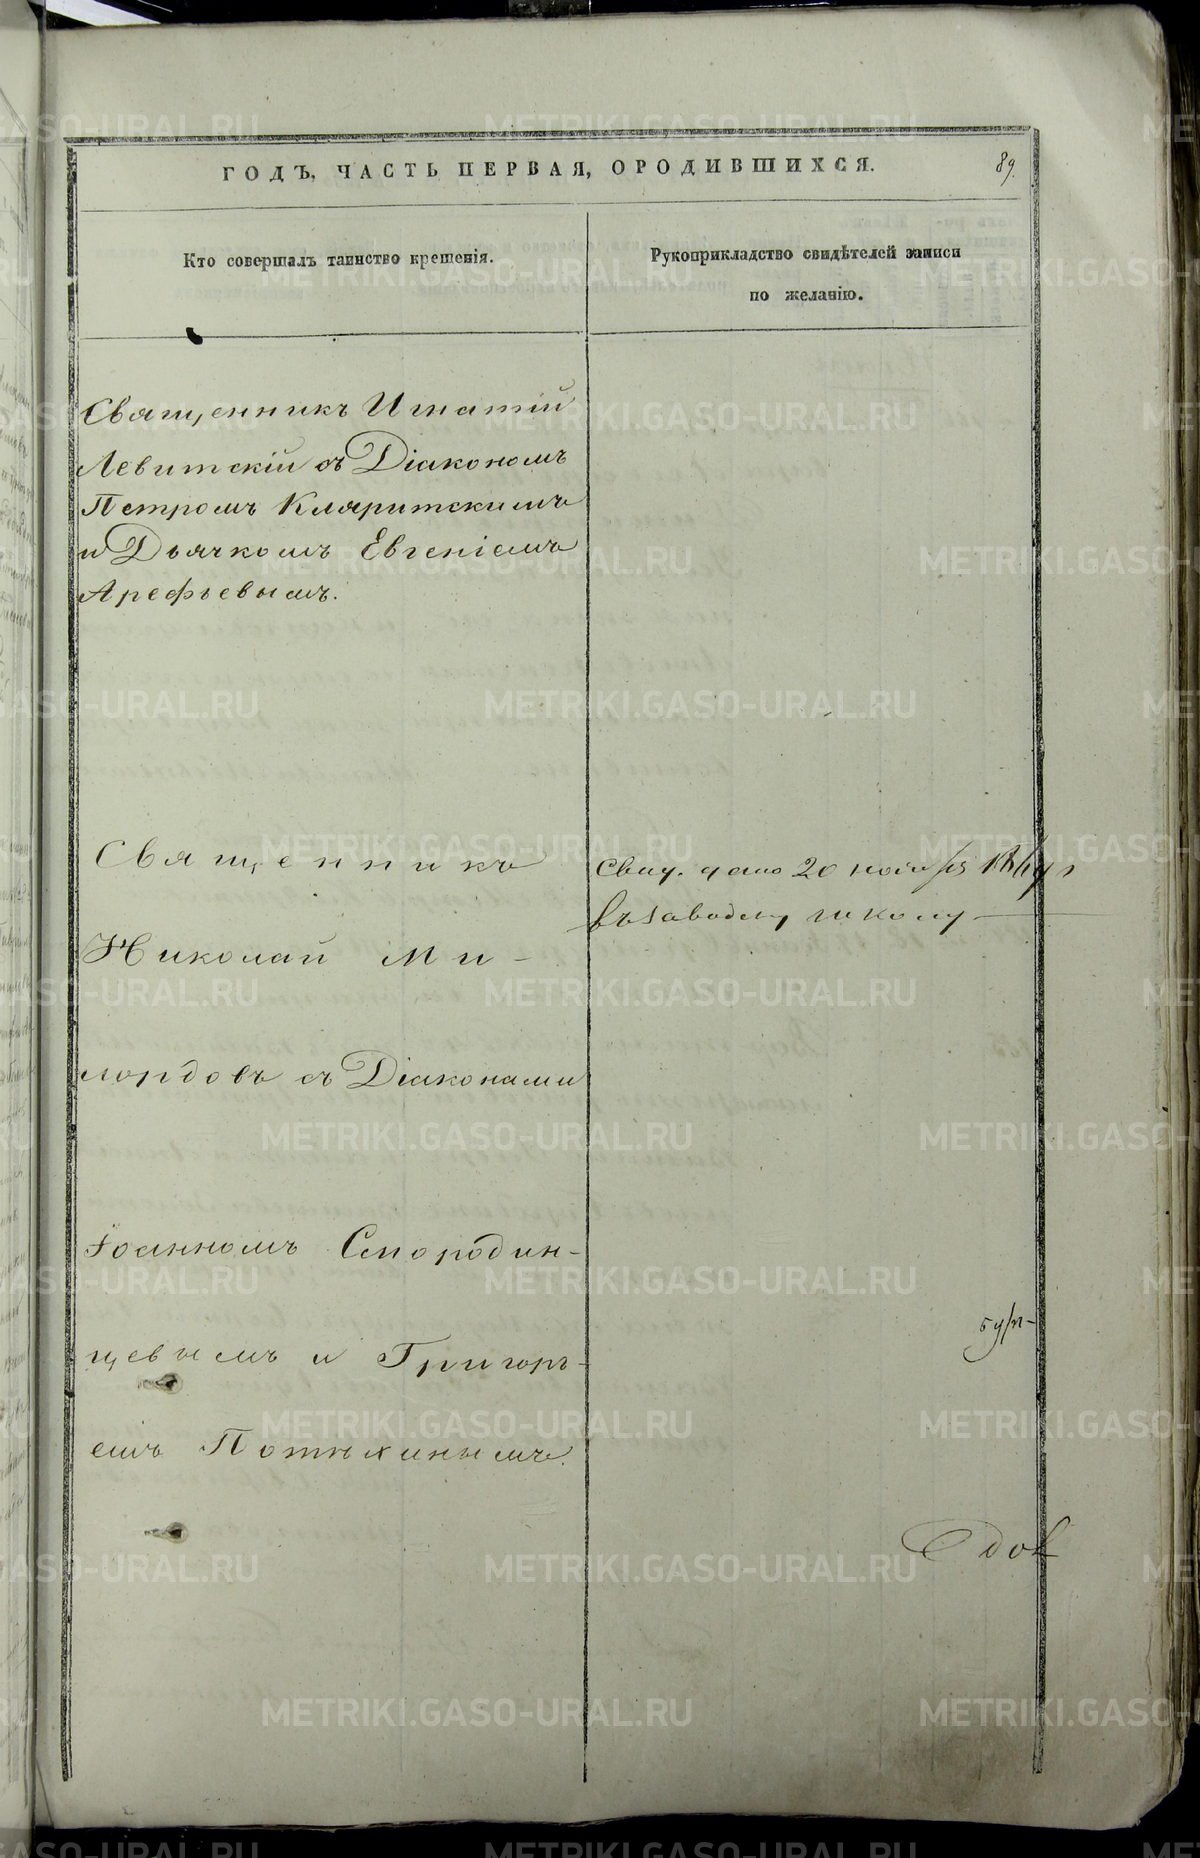 ГОДЪ, ЧАСТЬ ПЕРВАЯ, ОРОДИВШИХСЯ.
89.
Кто совершалъ таинство крещенія.
Рукоприкладство свидѣтелей записи
по желанію.
Священникъ Игнатій
Левитскій съ Діакономъ
Петромъ Кляритскимъ
и Дьячкомъ Евгеніемъ
Арефьевымъ.
Священникъ
Николай Ми-
лордовъ съ Діаконами
Іоанномъ Смородин-
цевымъ и Григорь-
емъ Потѣхинымъ.
Свид. дано 20 ноября
въ заводск. школу
METRIKI.GASO-URAL.RU